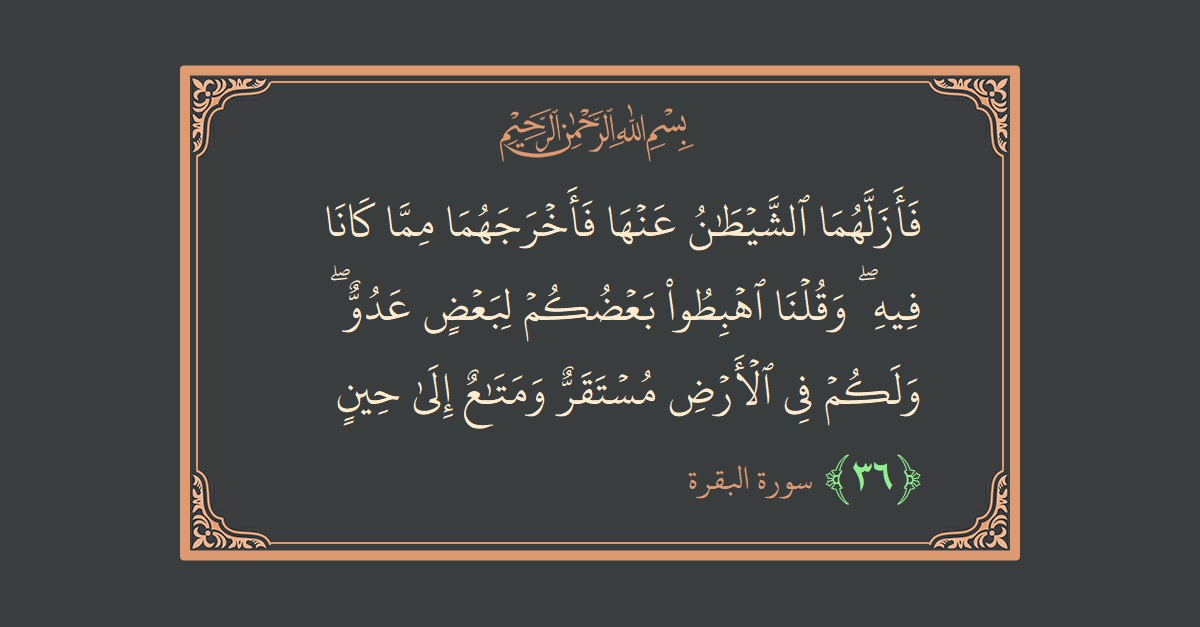 بِسْمِ اللهِ الرَّحْمٰنِ الرَّحِيْمِ
فَأَزَلَّهُمَا ٱلشَّيۡطَٰنُ عَنۡهَا فَأَخۡرَجَهُمَا مِمَّا كَانَا
فِيهِۖ وَقُلۡنَا ٱهۡبِطُواْ بَعۡضُكُمۡ لِبَعۡضٍ عَدُوّٞۖ
وَلَكُمۡ فِي ٱلۡأَرۡضِ مُسۡتَقَرّٞ وَمَتَٰعٌ إِلَىٰ حِينٖ
﴿٣٦﴾ سورة البقرة